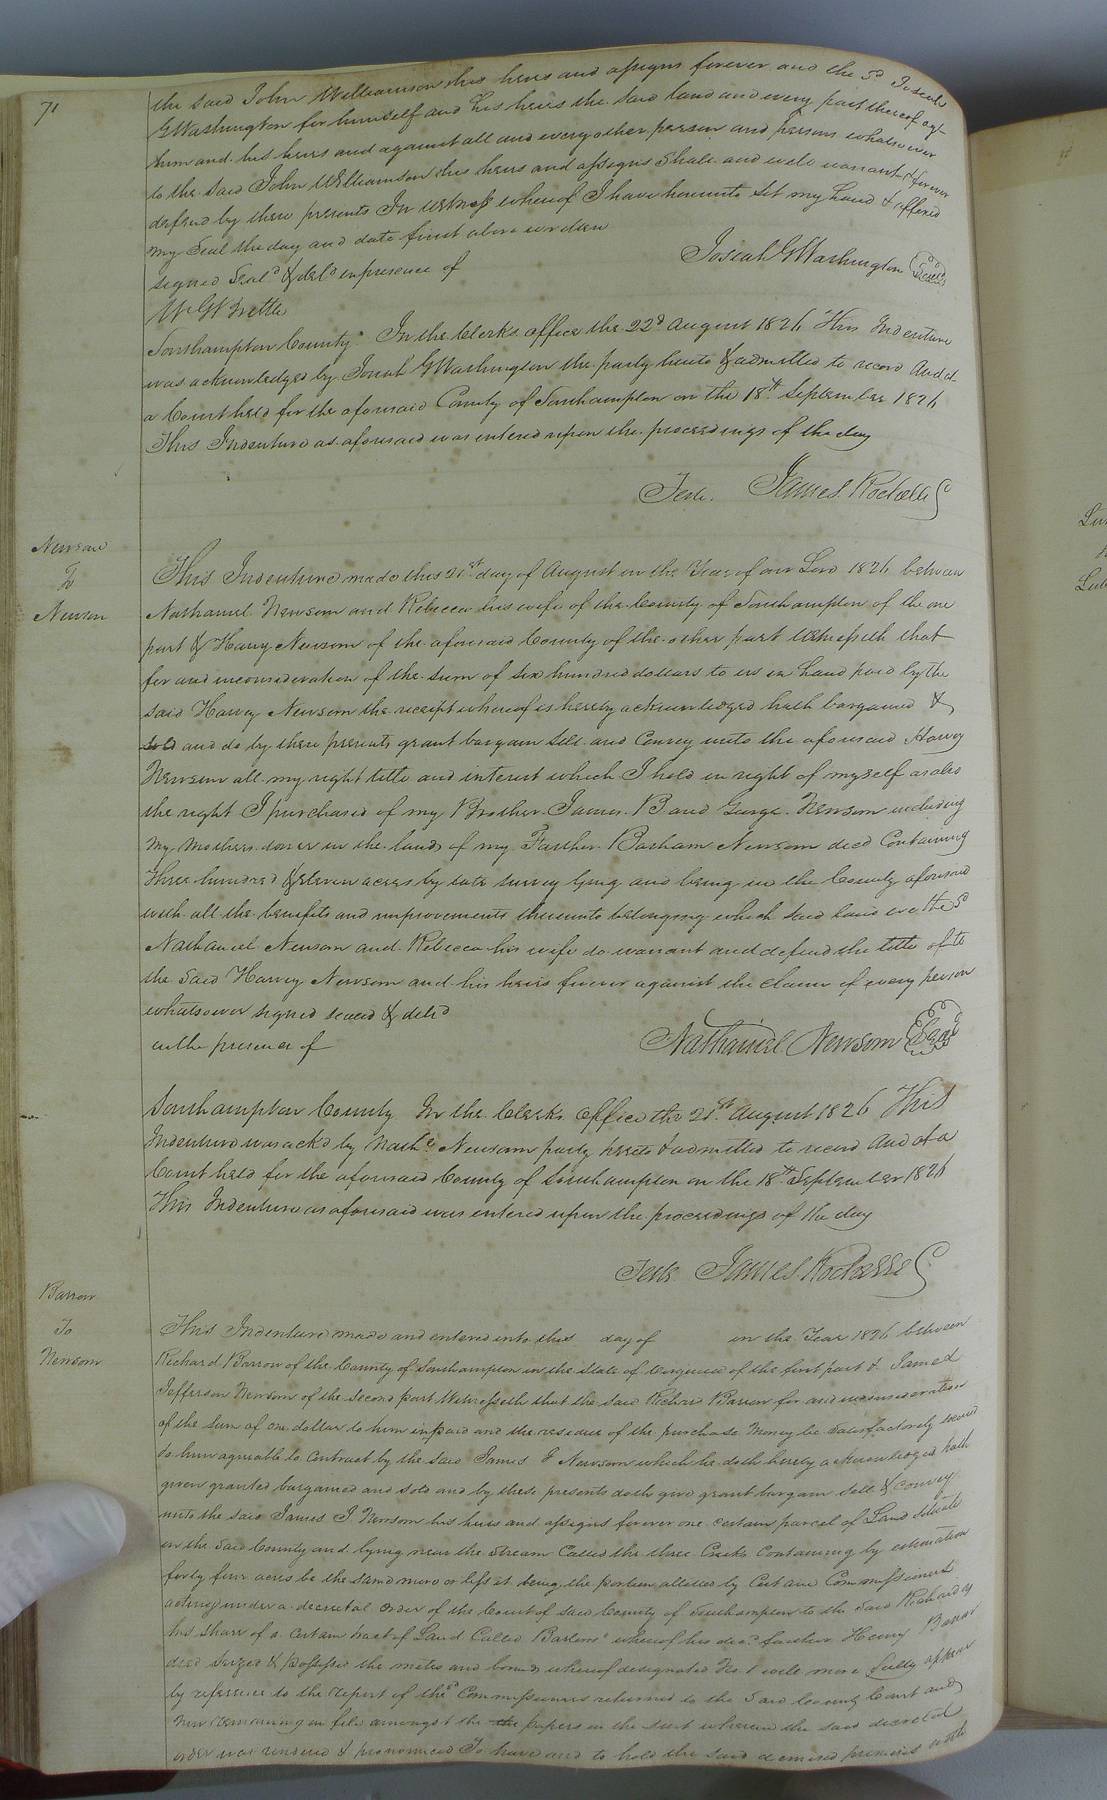 71
the said John Williamson his heirs and assigns forever and the Sd Josiah
G Washington for himself and his heirs the said land and every part thereof agt
him and his heirs and against all and every other person and persons whatsoever
to the said John Williamson his heirs and assigns shall and will warrant & forever
defend by these presents In witness whereof I have hereunto set my hand & affixed
my Seal the day and date first above written
signed Seald & deld in presence of
Josiah G Washington Seal
Southampton County In the Clerks office the 22d August 1826 This Indenture
was acknowledged by Josiah G Washington the party hereto & admitted to record And at
a Court held for the aforesaid County of Southampton on the 18th September 1826
This Indenture as aforesaid was entered upon the proceedings of the day
Teste. James Rochelle C
Newsom
To
Newsom
This Indenture made this 21st day of August in the Year of our Lord 1826 between
Nathaniel Newsom and Rebecca his wife of the County of Southampton of the one
part & Harvey Newsom of the aforesaid County of the other part Witnesseth that
for and in consideration of the sum of six hundred dollars to us in hand paid by the
said Harvey Newsom the receipt whereof is hereby acknowledged hath bargained &
sold and do by these presents grant bargain sell and Convey unto the aforesaid Harvey
Newsom all my right title and interest which I hold in right of myself as also
the right I purchased of my Brother James B and George Newsom including
my mothers dower in the land of my Farther Barham Newsom decd Containing
Three hundred & eleven acres by late survey lying and being in the County aforesaid
with all the benefits and improvements thereunto belonging which said land we the Sd
Nathaniel Newsom and Rebecca his wife do warrant and defend the title of to
the said Harvey Newsom and his heirs forever against the claim of every person
whatsoever signed sealed & deld
in the presence of
Nathaniel Newsom Seal
Southampton County In the Clerks Office the 21st August 1826 This
Indenture was ackd by Nathl Newsom party hereto & admitted to record And at a
Court held for the aforesaid County of Southampton on the 18th September 1826
This Indenture as aforesaid was entered upon the proceedings of the day
Teste James Rochelle C
Barrow
To
Newsom
This Indenture made and entered into this day of in the Year 1826 between
Richard Barrow of the County of Southampton in the State of Virginia of the first part & James
Jefferson Newsom of the Second part Witnesseth that the said Richard Barrow for and in consideration
of the Sum of one dollar to him in paid and the residue of the purchase Money be Satisfactorily secured
to him agreable to Contract by the said James J Newsom which he doth hereby acknowledged hath
given granted bargained and sold and by these presents doth give grant bargain sell & Convey
unto the said James J Newsom his heirs and assigns forever one certain parcel of Land situate
in the said County and lying near the Stream Called the three Creeks Containing by estimation
forty four acres be the same more or less it being the portion allotted by Certain Commissioners
acting under a decretal order of the Court of said County of Southampton to the said Richard as
his share of a certain tract of Land Called whereof his decd farther Henry Barrow
died seized & possessed the metes and bounds whereof designated No. 1 will more fully appear
by reference to the report of the sd Commissioners returned to the Said County Court and
now remaining on file amongst the the papers in the suit wherein the said decretal
order was rendered & pronounced To have and to hold the said demised premises with